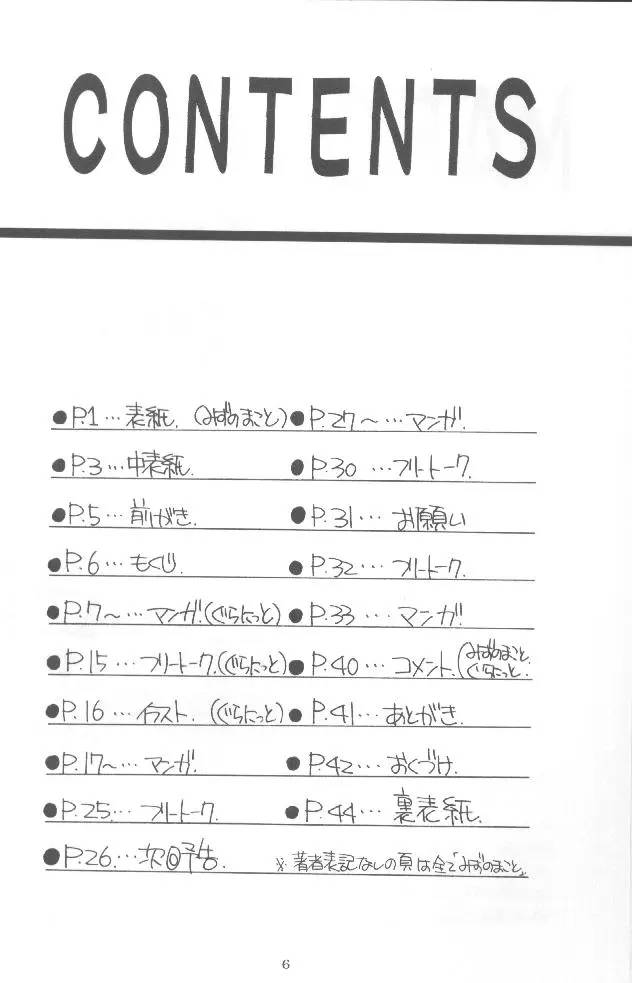 CONTENTS
●P.1…表紙.(みずのまこと)
●P.3…中表紙.
●P.5…前がき.
●P.6…もくじ.
●P.7〜…マンガ.(ぐらにっと)
●P.15…フリートーク.(ぐらにっと)
●P.16…イラスト.(ぐらにっと)
●P.17〜…マンガ.
●P.25…フリートーク.
●P.26…次回予告.
●P.27〜…マンガ.
●P.30…フリートーク.
●P.31…お願い
●P.32…フリートーク.
●P.33…マンガ.
●P.40…コメント.(みずのまこと.
ぐらにっと.
●P.41…あとがき.
●P.42…おくづけ.
●P.44…裏表紙.
※著者表記なしの頁は全て「みずのまこと」
6